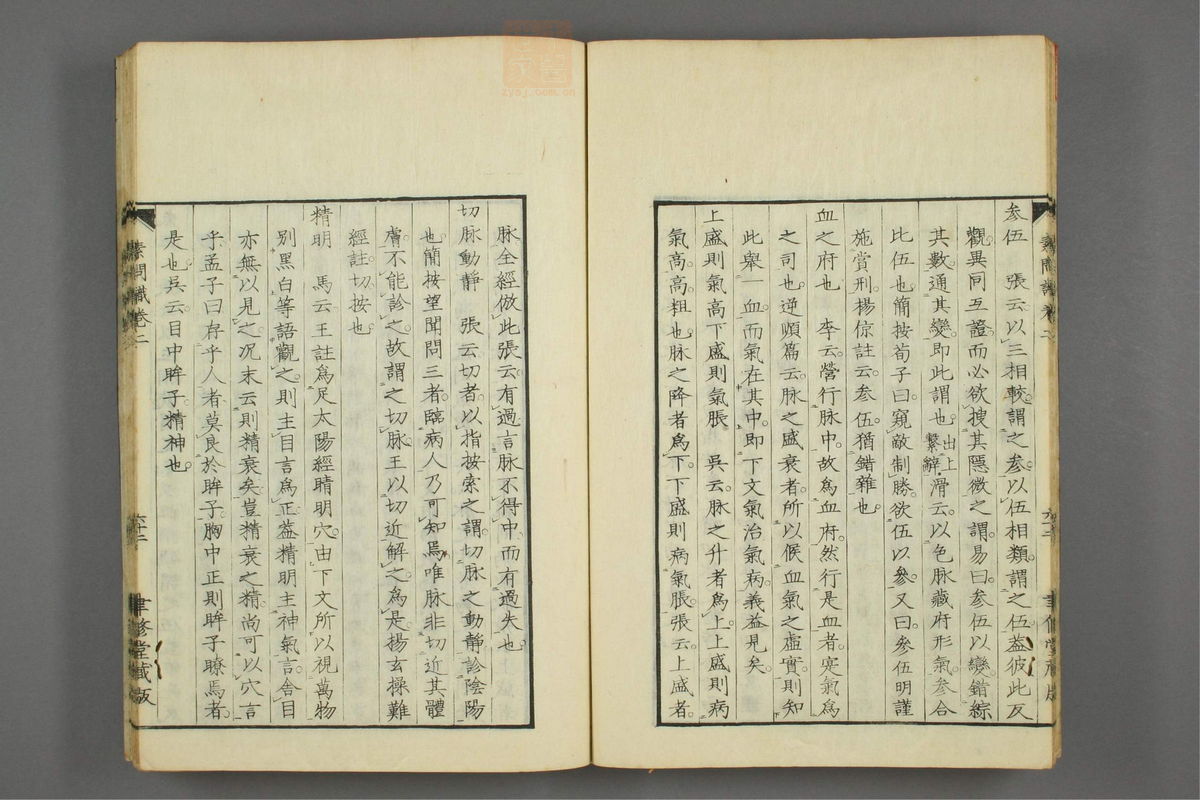 参伍　張云以三相較謂之参以伍相類謂之伍葢彼此反
觀異同互證而必欲搜其隱微之謂易曰参伍以變錯綜
其數通其變即此謂也出上繫辭滑云以色脉藏府形氣参合
比伍也簡按荀子曰窺敵制勝欲伍以參又曰參伍明謹
施賞刑楊倞註云参伍猶錯雜也
血之府也　李云營行脉中故為血府然行是血者寔氣為
之司也逆順篇云脉之盛衰者所以候血氣之虛實則知
此舉一血而氣在其中即下文氣治氣病義益見矣
上盛則氣高下盛則氣脹　吳云脉之升者為上上盛則病
氣高高粗也脉之降者為下下盛則病氣脹張云上盛者
素問識卷二
六十二
聿修堂藏版
脉全經倣此張云有過言脉不得中而有過失也
切脉動靜　張云切者以指按索之謂切脉之動靜診陰陽
也簡按望聞問三者臨病人乃可知焉唯脉非切近其體
膚不能診之故謂之切脉王以切近解之為是揚玄操難
經註切按也
精明　馬云王註為足太陽經睛明穴由下文所以視萬物
別黑白等語觀之則主目言為正葢精明主神氣言舍目
亦無以見之況末云則精衰矣豈精衰之精尚可以穴言
乎孟子曰存乎人者莫良於眸子胸中正則眸子瞭焉者
是也吳云目中眸子精神也
素問識卷二
六十二
聿修堂藏版
zysj.com.cn